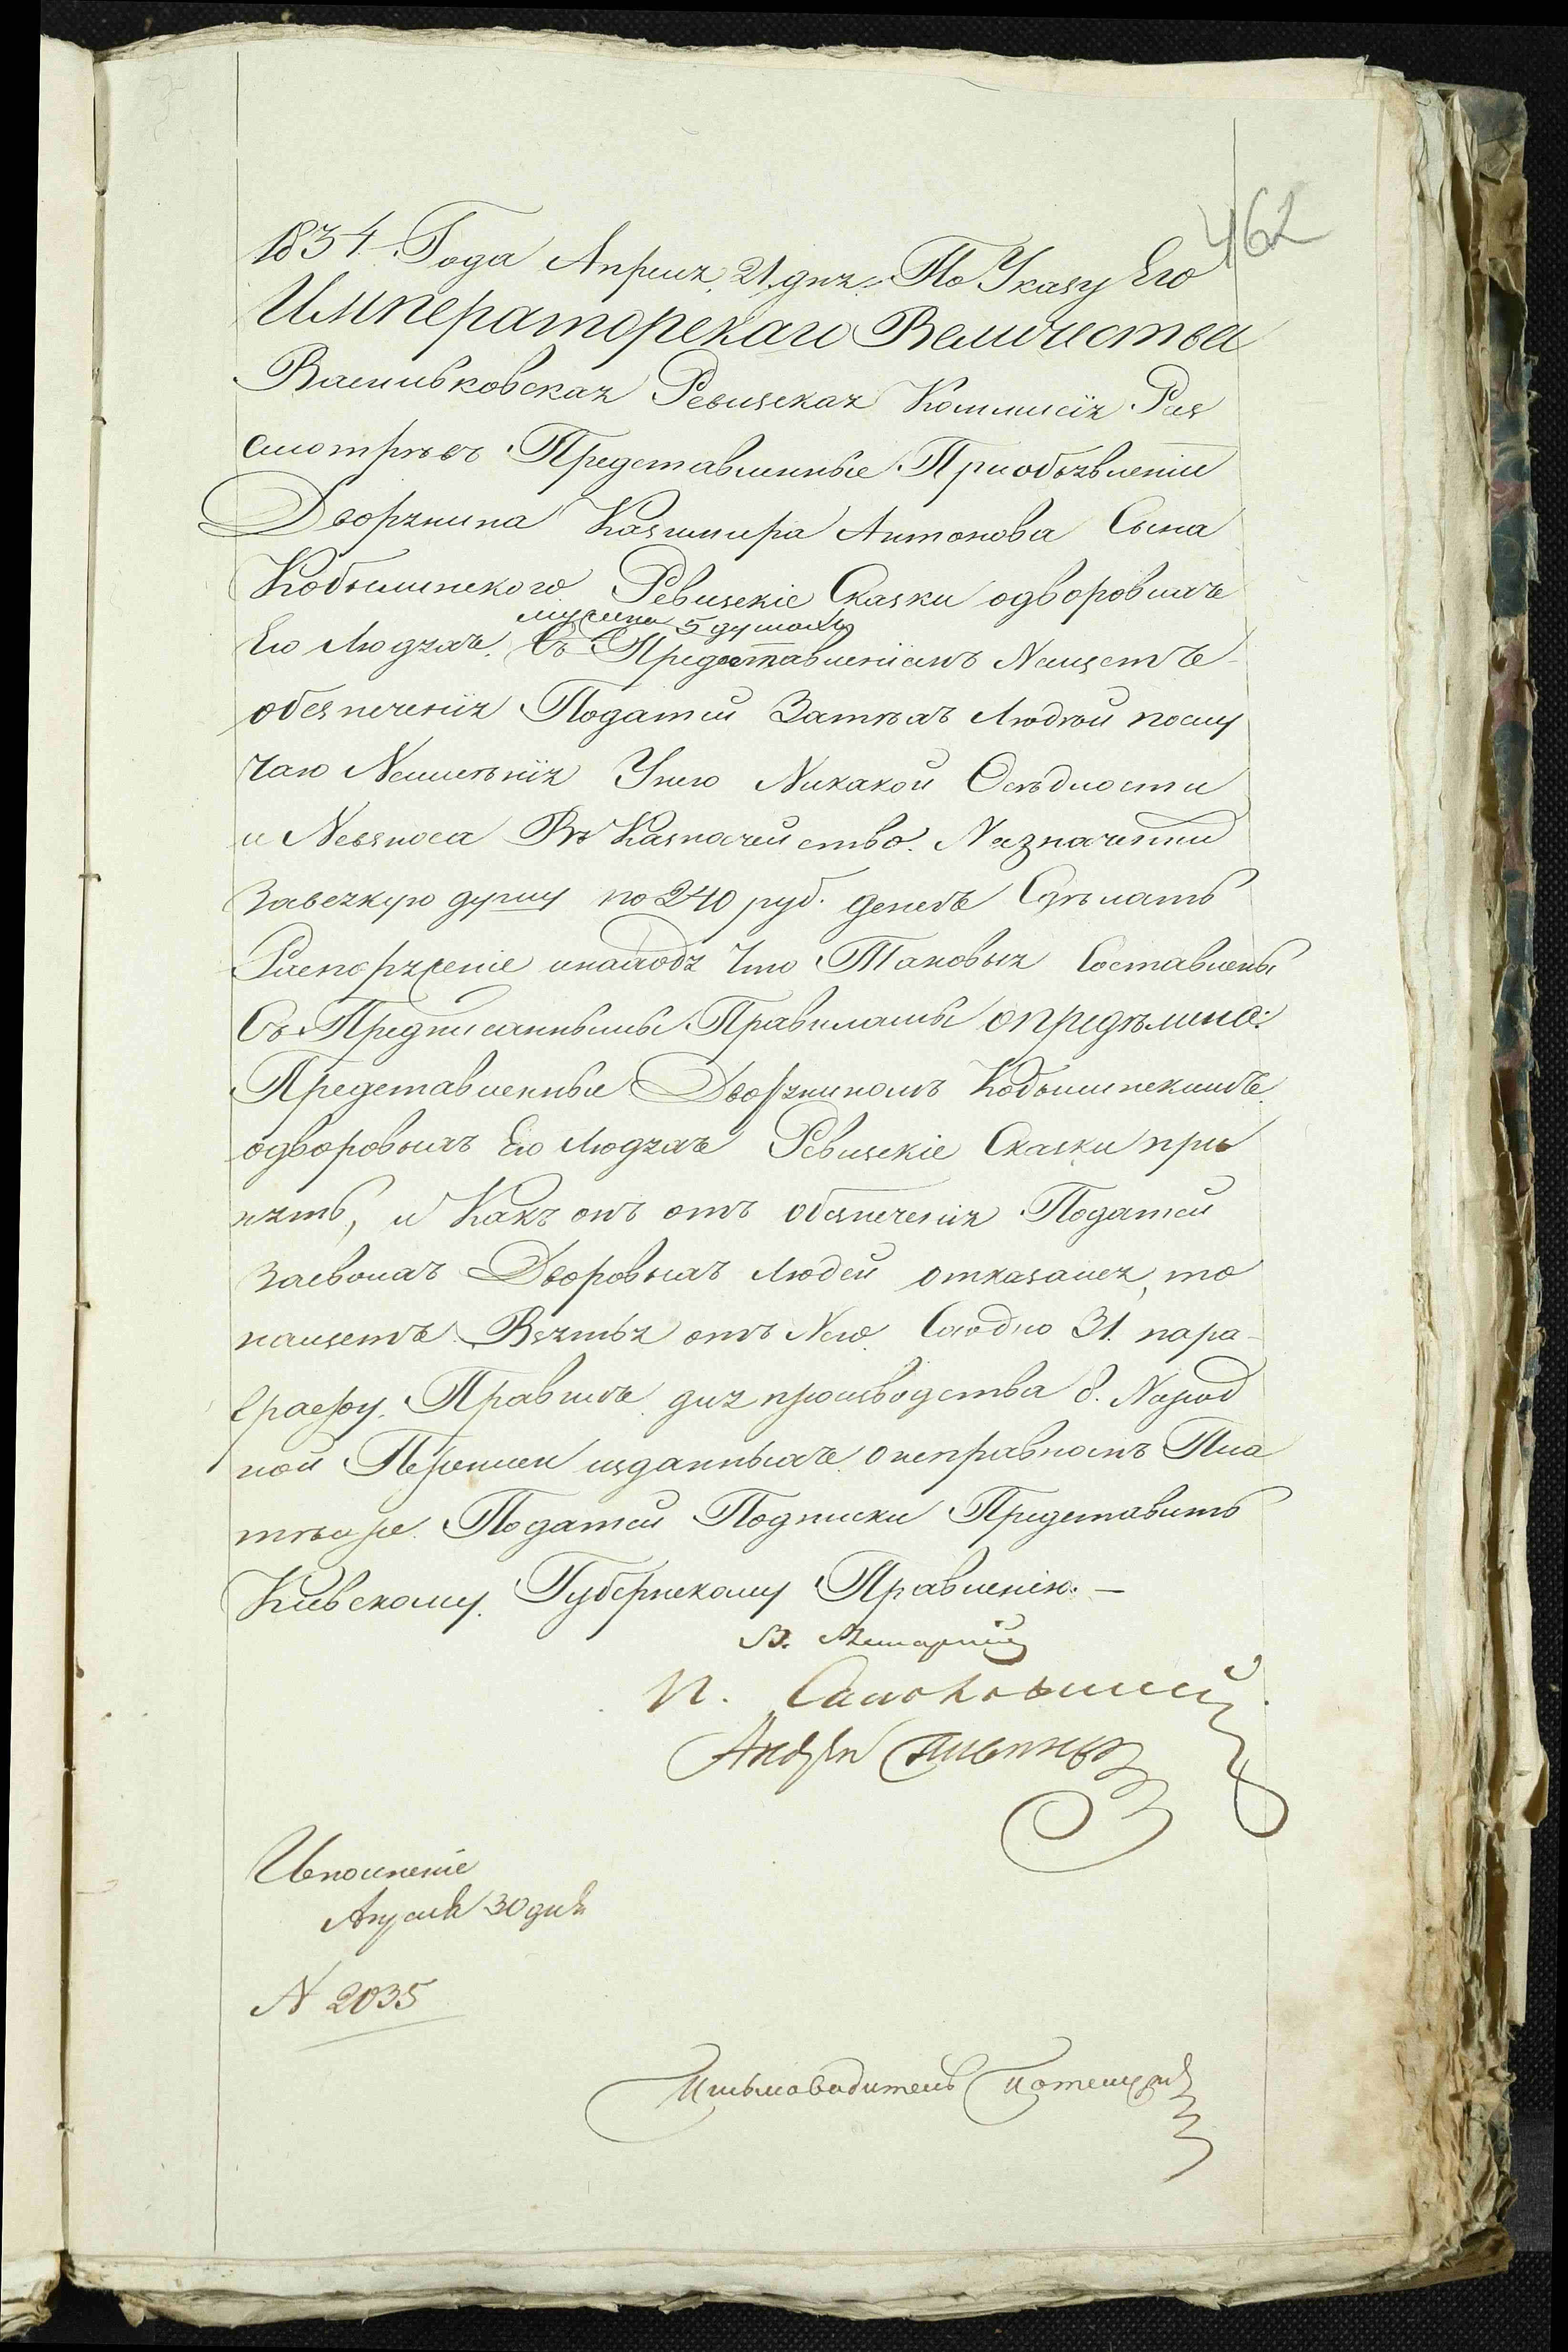 462
1834 Года Апреля 21 дня. По Указу Его
Императорскаго Величества
Васильковская Ревизская Коммисія Раз
смотрѣвъ Представленные При объявленіи
Дворянина Казимира Антонова Сына
Кобылинского Ревизскіе Сказки одворовыхъ
мужска 5 душахъ
Его Людяхъ, Съ Представленіемъ Насчетъ
обезпеченія Податей Затѣхъ Людей послу
чаю Неименія Унего Никакой Осѣдлости
и Невзноса Въ Казначейство. Назначенни
Завсякую душу по 240 руб. денегъ Сдѣлать
Распоряженіе инаходя Что Таковыя Составлены
Съ Предписанными Правилами опредѣлило:
Представленные Дворяниномъ Кобылинскимъ
одворовыхъ Его Людяхъ Ревизскіе Сказки при
нять, и Какъ онъ отъ обезпеченія Податей
Засвоихъ Дворовыхъ Людей отказался, то
насчетъ Взятья отъ Него Согодно 31. пара-
графу, Правилъ для производства 8. Народ
ной Переписи изданныхъ оисправномъ Пла
тѣжѣ Податей Подписки Представить
Кіевскому Губернскому Правленію. —
В.
П.
Андрей
Исполненіе
Апреля 30 дня
N 2035
Письмоводитель